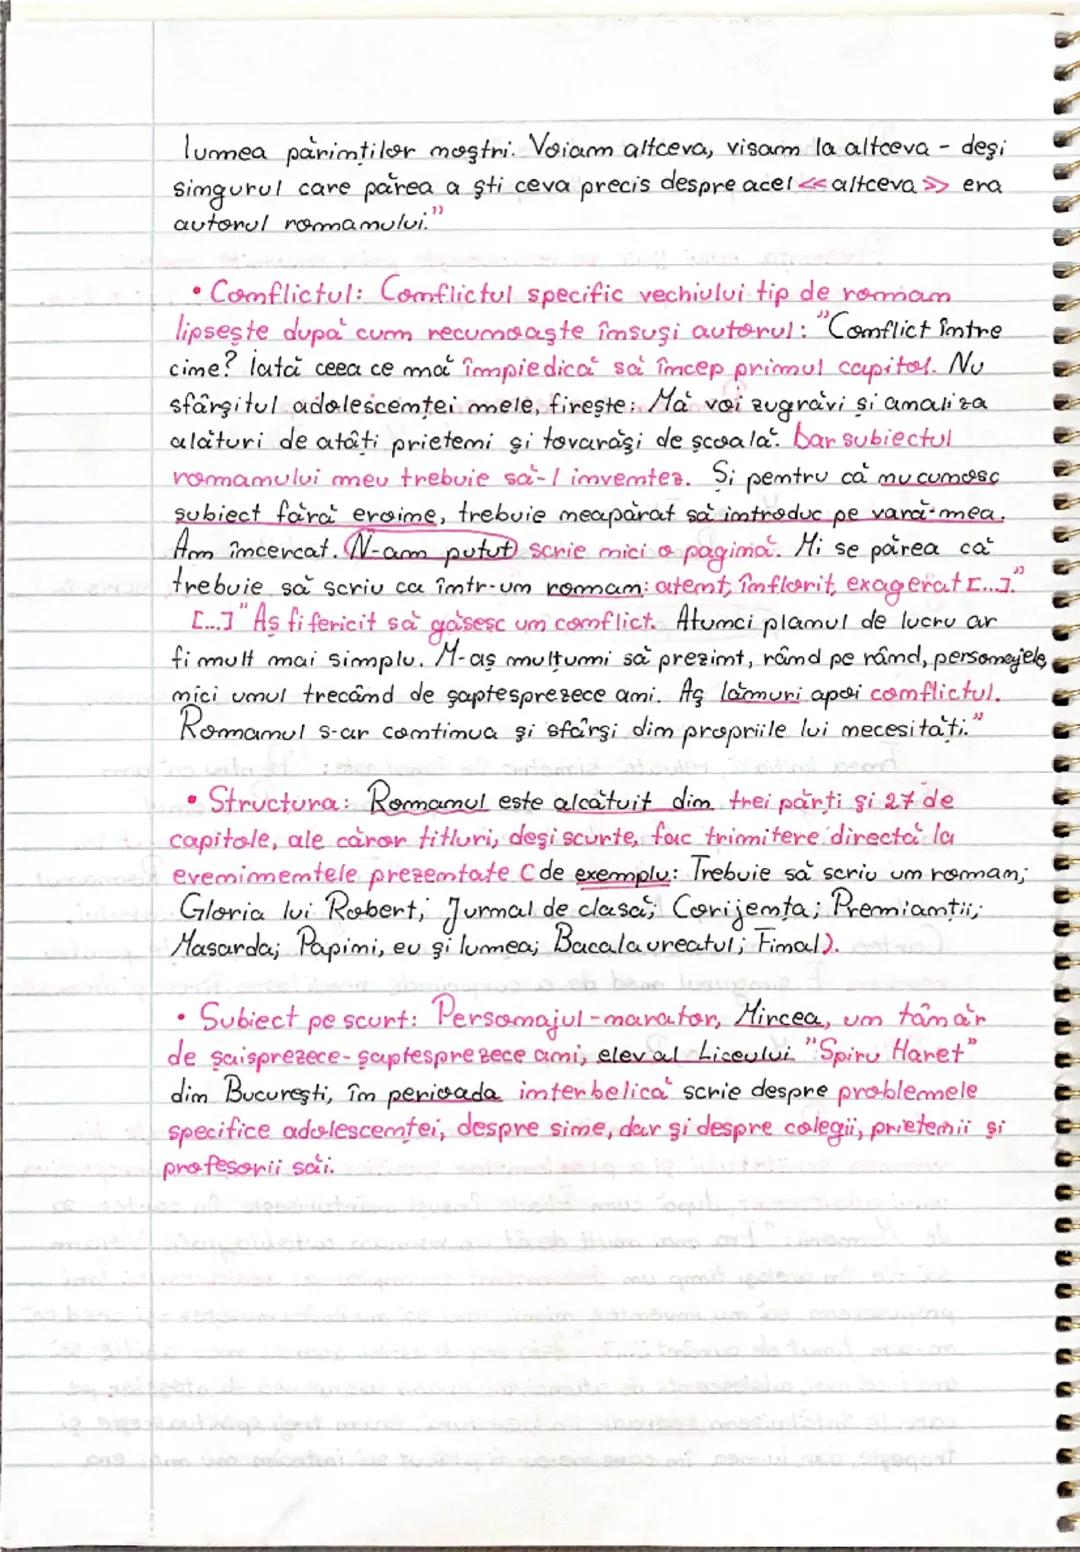 lumea părinților noștri. Voiam altceva, visam la altceva - deși
singurul care părea a ști ceva precis despre acel <<altceva>> era
autorul romanului."
• Conflictul: Conflictul specific vechiului tip de roman
lipsește după cum recunoaște însuși autorul: "Conflict între
cine? Iată ceea ce mă împiedică să încep primul capitol. Nu
sfârșitul adolescenței mele, firește; Mă voi zugrăvi și analiza
alături de atâți prieteni și tovarăși de școală. Dar subiectul
romanului meu trebuie să-l inventez. Și pentru că nu cunosc
subiect fără eroine, trebuie neapărat să introduc pe vară-mea.
Am încercat. N-am putut scrie nici o pagină. Mi se părea că
trebuie să scriu ca într-un roman: atent, înflorit, exagerat [...]."
[...] "Aș fi fericit să găsesc un conflict. Atunci planul de lucru ar
fi mult mai simplu. M-aș mulțumi să prezint, rând pe rând, personajele,
nici unul trecând de șaptesprezece ani. Aș lămuri apoi conflictul.
Romanul s-ar continua și sfârși din propriile lui necesități."
• Structura: Romanul este alcătuit din trei părți și 27 de
capitole, ale căror titluri, deși scurte, fac trimitere directă la
evenimentele prezentate (de exemplu: Trebuie să scriu un roman;
Gloria lui Robert; Jurnal de clasă; Corijența; Premianții;
Masarda; Papini, eu și lumea; Bacalaureatul; Final).
• Subiect pe scurt: Personajul-narator, Mircea, un tânăr
de șaisprezece-șaptesprezece ani, elev al Liceului "Spiru Haret"
din București, în perioada interbelică scrie despre problemele
specifice adolescenței, despre sine, dar și despre colegii, prietenii și
profesorii săi.